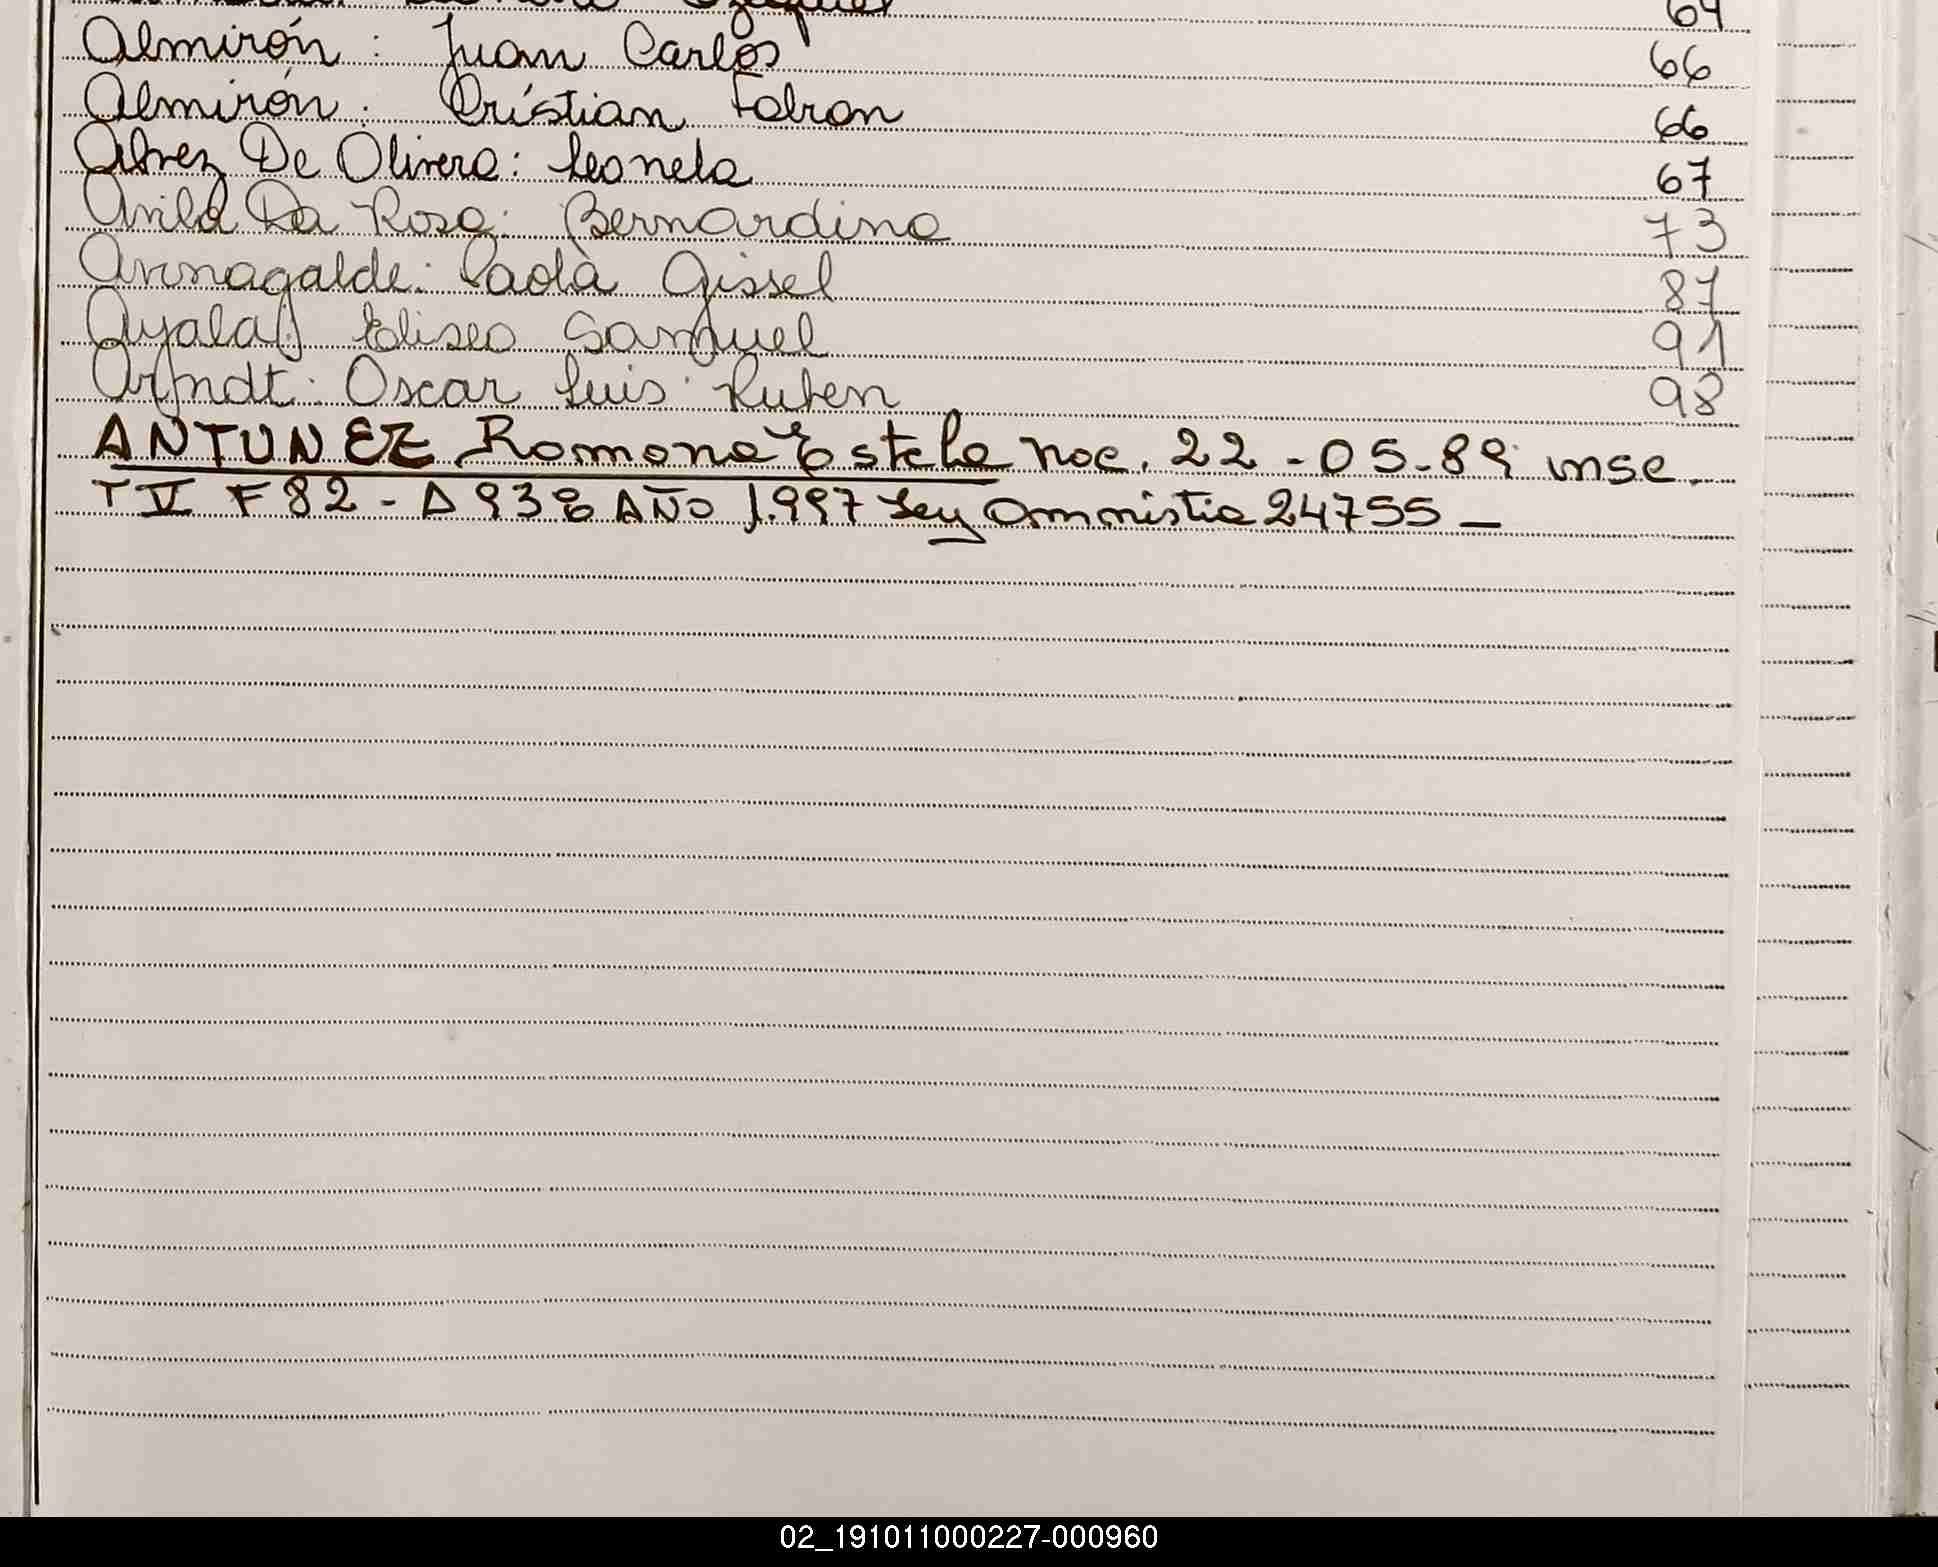 Ezequiel 64
Almirón: Juan Carlos 66
Almirón: Cristian Fabian 66
Alvez De Olivera: Leonela 67
Avila Da Rosa: Bernardino 73
Paola Gissel 87
Ayala: Eliseo Samuel 91
Arndt: Oscar Luis Ruben 98
ANTUNEZ Ramona Estela nac. 22-05-89 insc.
T V F 82 - A 938 AÑO 1.997 Ley amnistia 24755 -
02_191011000227-000960